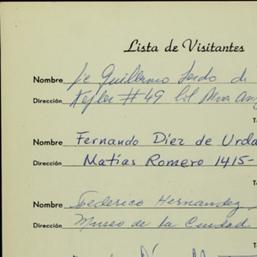 Lista de Visitantes
Nombre Sr Guillermo Jerdo de
Dirección Kepler #49 Col Nva Anz
T
Nombre Fernando Díez de Urda
Dirección Matías Romero 1415-
T
Nombre Federico Hernandez
Dirección Museo de la Ciudad
T